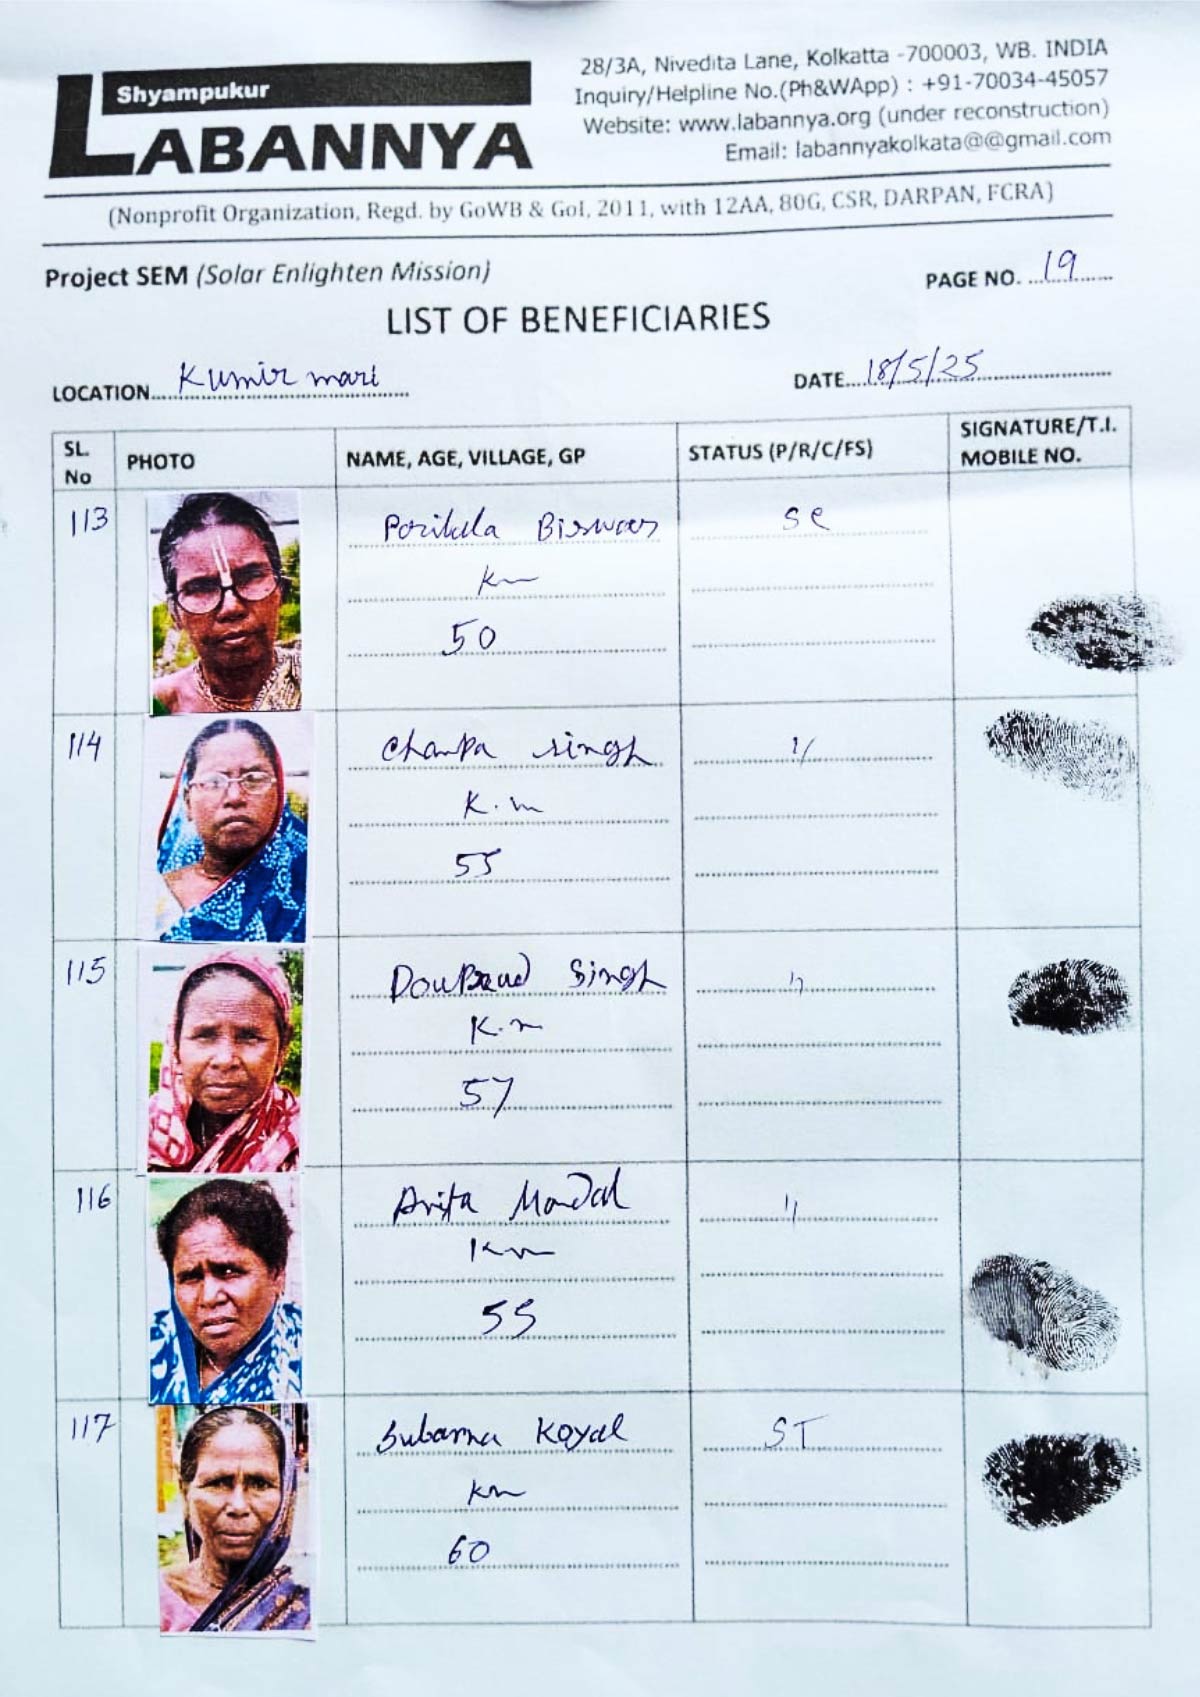 Shyampukur
LABANNYA
28/3A, Nivedita Lane, Kolkatta -700003, WB. INDIA
Inquiry/Helpline No.(Ph&WApp) : +91-70034-45057
Website: www.labannya.org (under reconstruction)
Email: labannyakolkata@@gmail.com
(Nonprofit Organization, Regd. by GoWB & GoI, 2011, with 12AA, 80G, CSR, DARPAN, FCRA)
Project SEM (Solar Enlighten Mission)
PAGE NO. 19
LIST OF BENEFICIARIES
LOCATION Kumirmari
DATE 18/5/25
SL. No PHOTO NAME, AGE, VILLAGE, GP STATUS (P/R/C/FS) SIGNATURE/T.I. MOBILE NO.
113 Biswas SC
Km
50
114 Champa Singh 〃
K.m
55
115 Singh 〃
K.m
57
116 Mondal 〃
Km
55
117 Subarna Koyal ST
Km
60